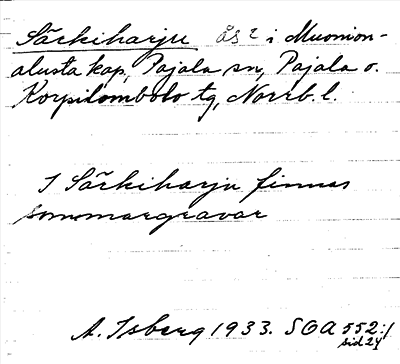 Särkiharju ås? i Muonion-
alusta kap, Pajala sn, Pajala o.
Korpilombolo tg, Norrb. l.
I Särkiharju finnas
sommargravar
A. Isberg 1933. SOA 552:1
sid 24